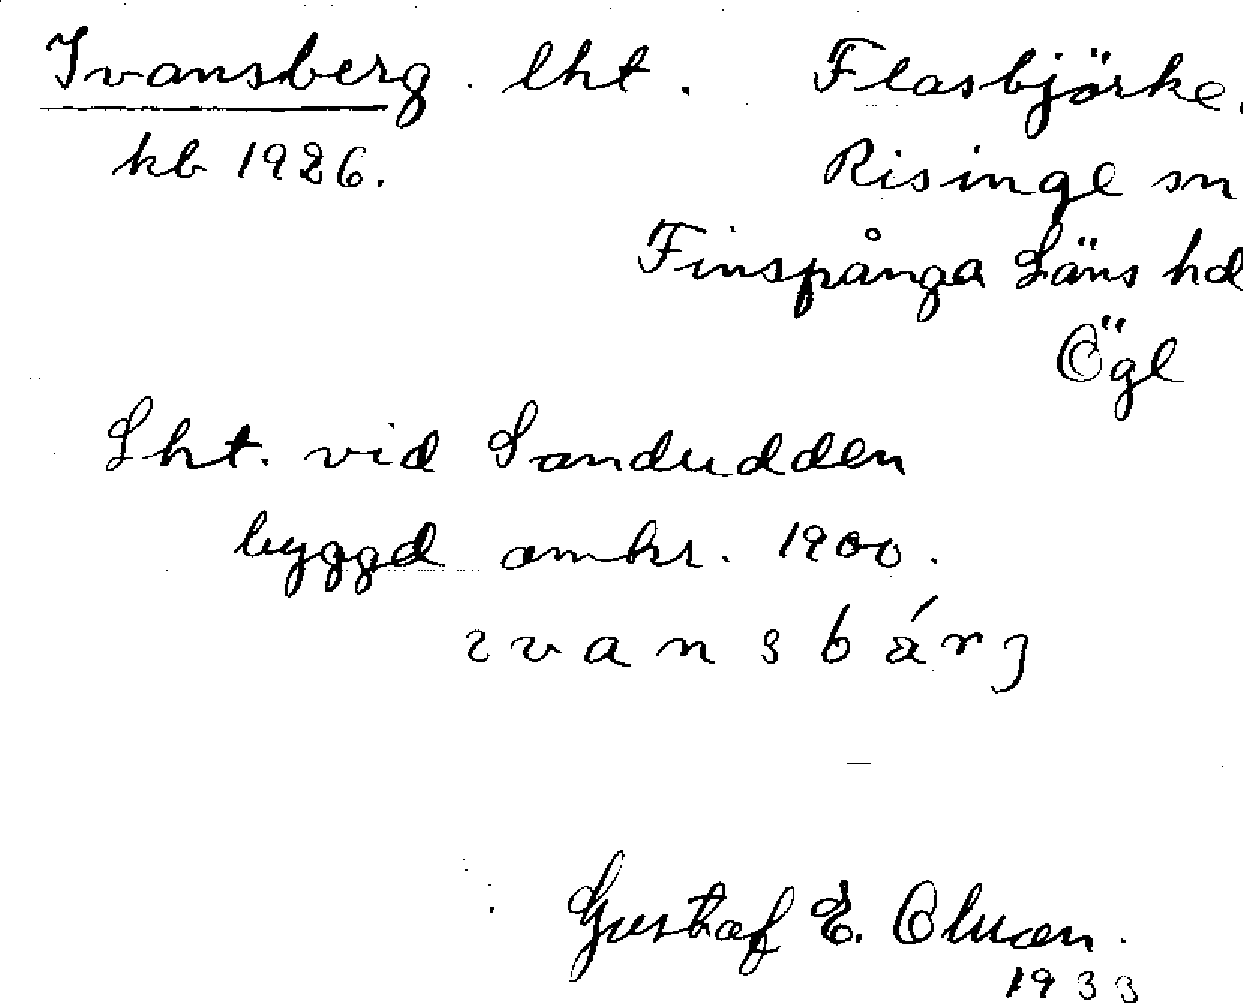 Ivansberg. lht. Flasbjörke.
kb 1926. Risinge sn
Finspånga Läns hd
Ögl
Lht. vid Sandudden
byggd omkr. 1900.
ivansbárj
Gustaf E.
1933